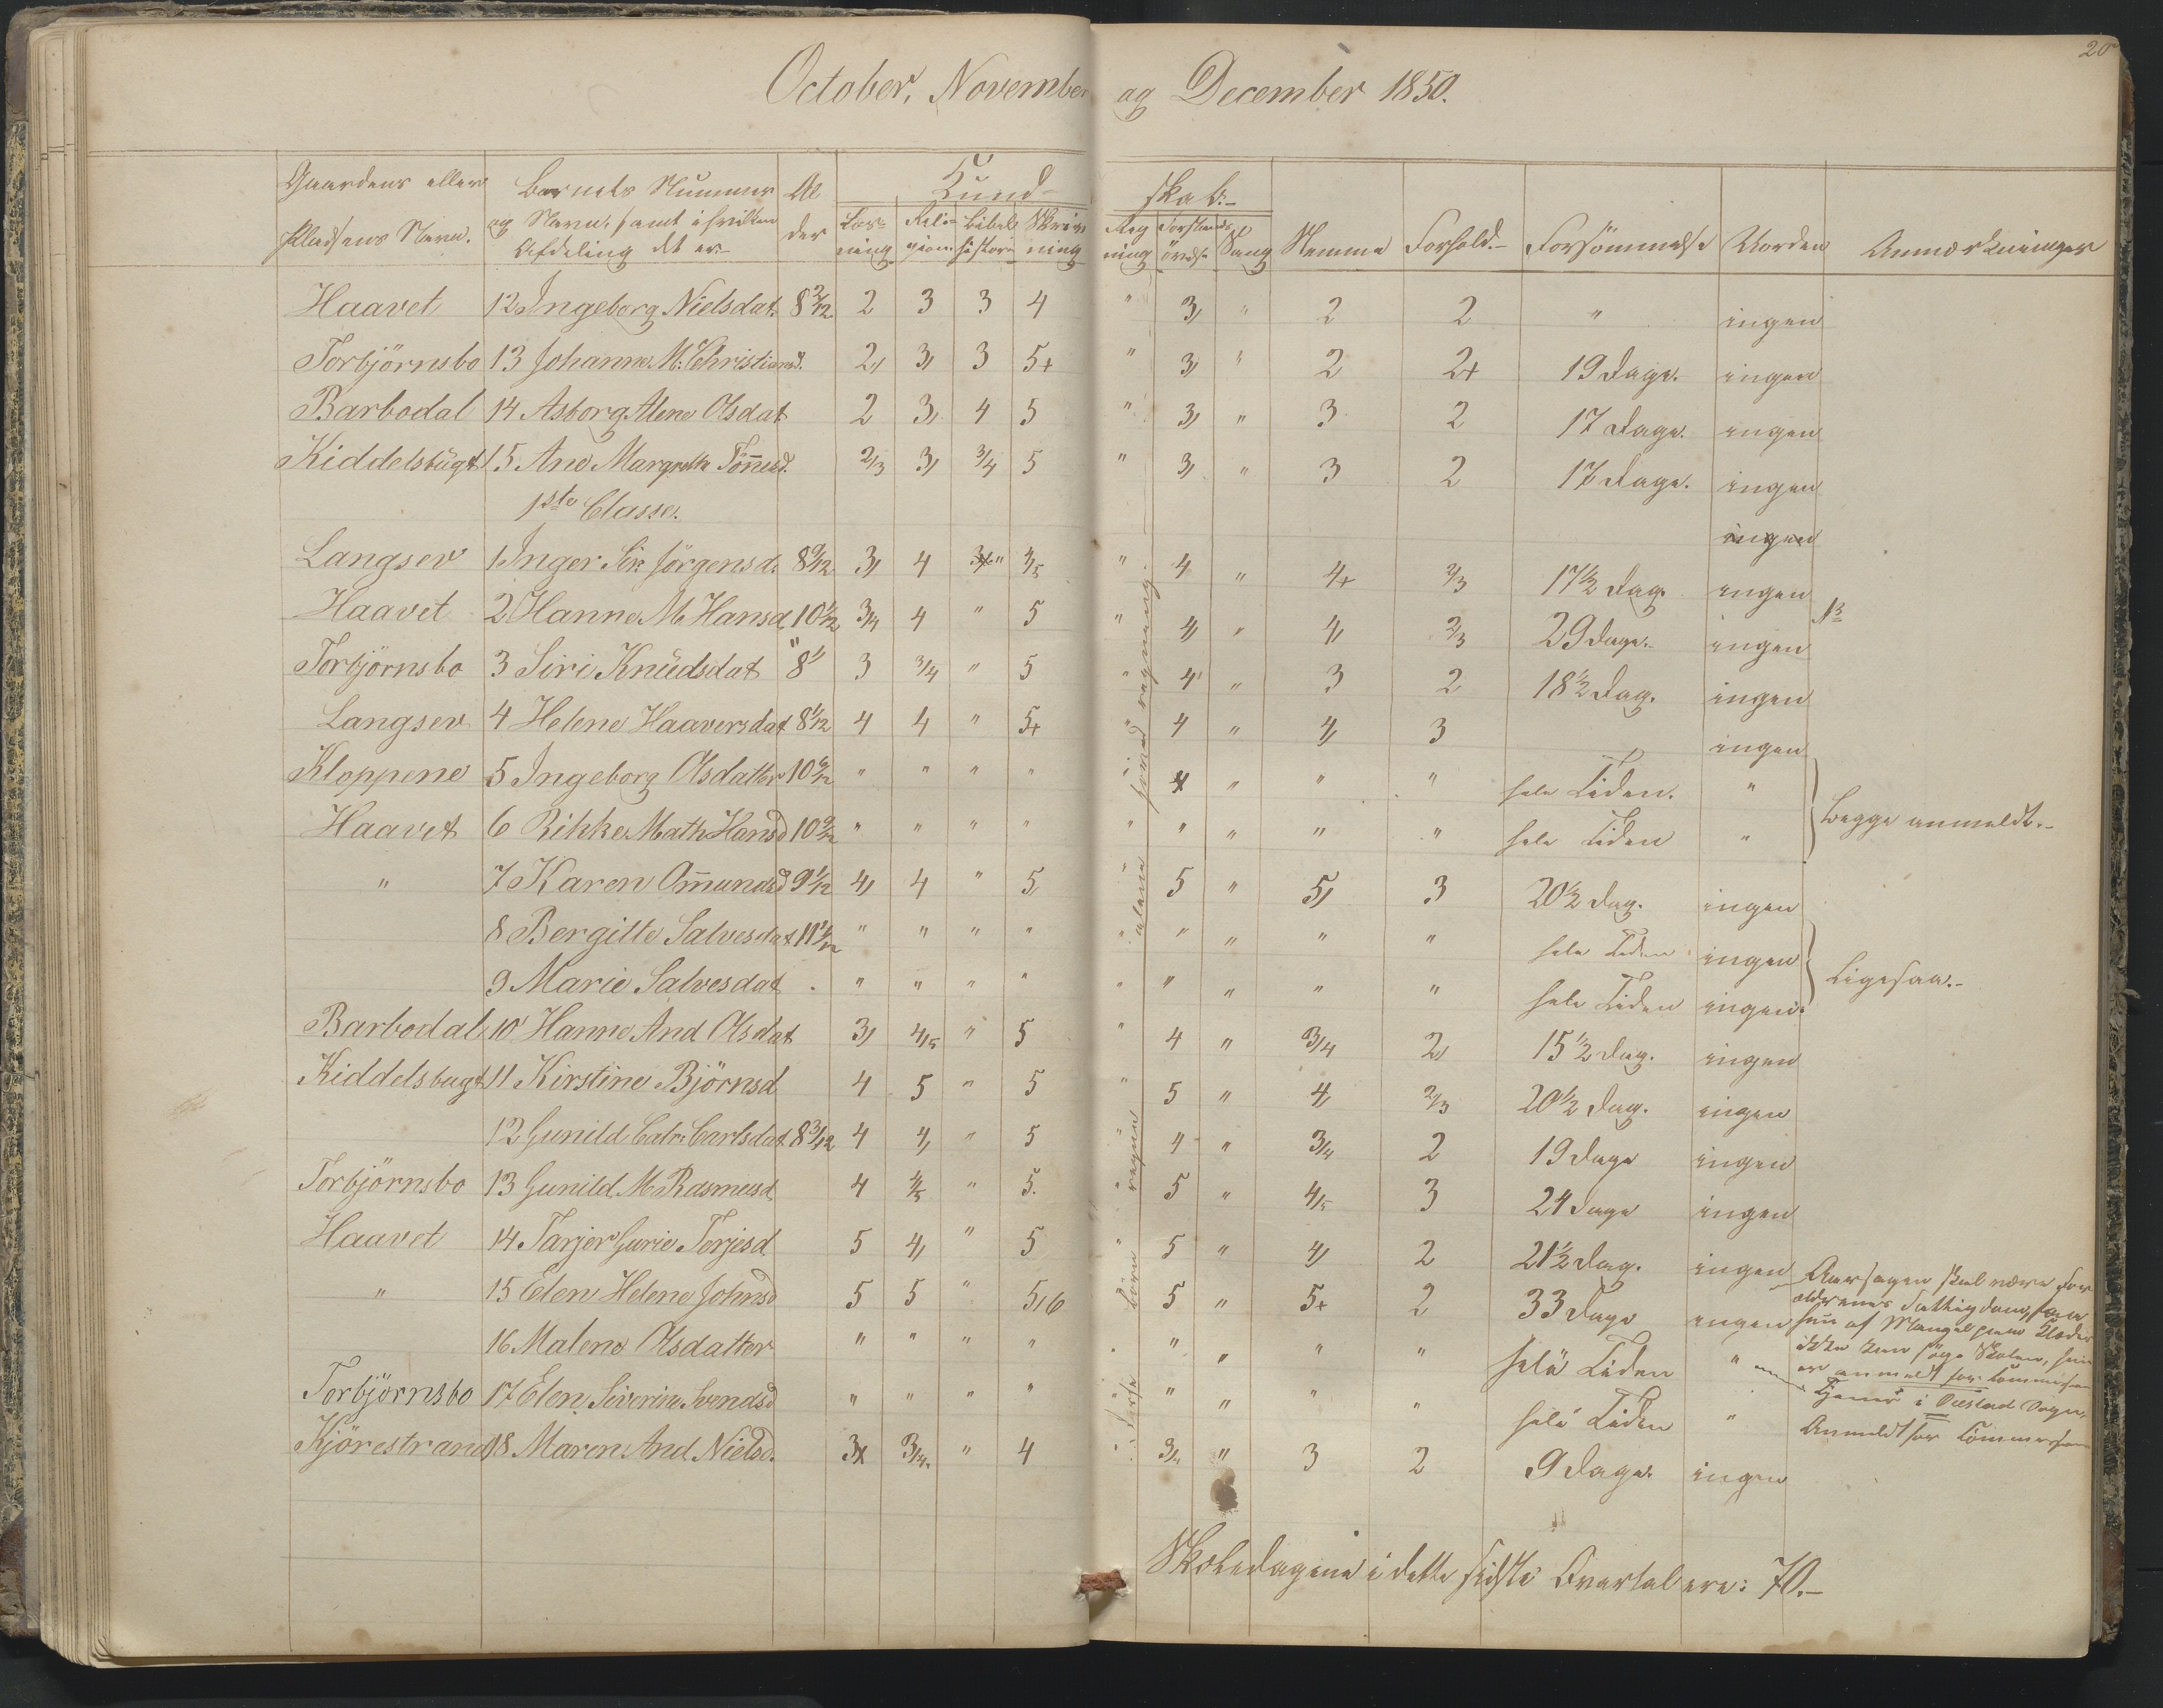 20
October, November og December 1850.
Gaardens eller Pladsens Navn. Barnets Nummer og Navn, samt i hvilken Afdeling det er Alder Kundskab:- Læsning Religion Bibelhistorie Skrivning Regning Forstandsøvelse Sang Nemme Forhold.- Forsömmelse Orden Anmærkninger
Haavet 12 Ingeborg Nielsdat. 8 2/12 2 3 3 4 " 3, " 2 2 " ingen
Torbjörnsbo 13 Johanne M. Christiansd. 2, 3, 3 5+ " 3, " 2 2+ 19 Dage. ingen
Barbodal 14 Asborg Alene Olsdat 2 3, 4 5 " 3, " 3 2 17 Dage. ingen
Kiddelsbugt 15 Ane Margrethe Tönnesd. 2/3 3, 3/4 5 " 3, " 3 2 17 Dage. ingen
1ste Classe.
ingen
Langsev 1 Inger Jörgensd. 8 9/12 3, 4 " 4/5 " 4 " 4+ 2/3 17 1/2 Dag. ingen
Haavet 2 Hanne M. Hansd 10 3/4 4 " 5 " 4, " 4, 2/3 29 Dage. ingen
Torbjörnsbo 3 Siri Knudsdat 8 " 3 3/4 " 5 " 4 " 3 2 18 1/2 Dag. ingen
Langsev 4 Helene Haaversdat 8 1/12 4 4 " 5+ 4 " 4, 3 ingen
Kloppene 5 Ingeborg Olsdatter 10 " " " " " " " hele Tiden. "
Haavet 6 Rikke Math Hansd 10 9/12 " " " " " " " " " hele Tiden " Begge anmeldt.-
" 7 Karen Omundsd 9 1/12 4, 4 " 5 5 " 5, 3 20 1/2 Dag. ingen
8 Bergitte Salvesdat 11 " " " " " " " " " hele Tiden ingen
9 Marie Salvesdat . " " " " " " " " " hele Tiden ingen. Ligesaa.-
Barbodal 10 Hanne And Olsdat 3, 4/5 " 5 " 4 " 3/4 2, 15 1/2 Dag. ingen
Kiddelsbugt 11 Kirstine Björnsd 4 5 " 5 " 5 " 4, 2/3 20 1/2 Dag. ingen
12 Gunild Catr. Carlsdat. 8 3/12 4 4, " 5 4 " 3/4 2 19 Dage ingen
Torbjörnsbo 13 Gunild M Rasmusd 4 4/5 " 5. " 5 " 4/5 3 24 Dage ingen
Haavet 14 Tarjer Gurie Terjesd 5 4, " 5 5 " 4, 2 21 1/2 Dag. ingen
" 15 Elen Helene Johnsd 5 5 " 5/6 5 " 5+ 2 33 Dage ingen Aarsagen skal være Forældrenes Fattigdom,
af Mangel paa Klæder
ikke kan söge Skolen,
er anmeldt for Commissionen
16 Malene Olsdatter " " " " " " " " hele Tiden "
Torbjörnsbo 17 Elen Severine Svendsd " " " " " " " " hele Tiden " Tjener i Öiestad Sogn,
Anmeldt for Commissionen
Kjörestrand 18 Maren And. Nielsd. 3+ 3/4. " 4 3/4 " 3 2 9 Dage. ingen
Skoledagene i dette sidste Qvartal ere: 70.-